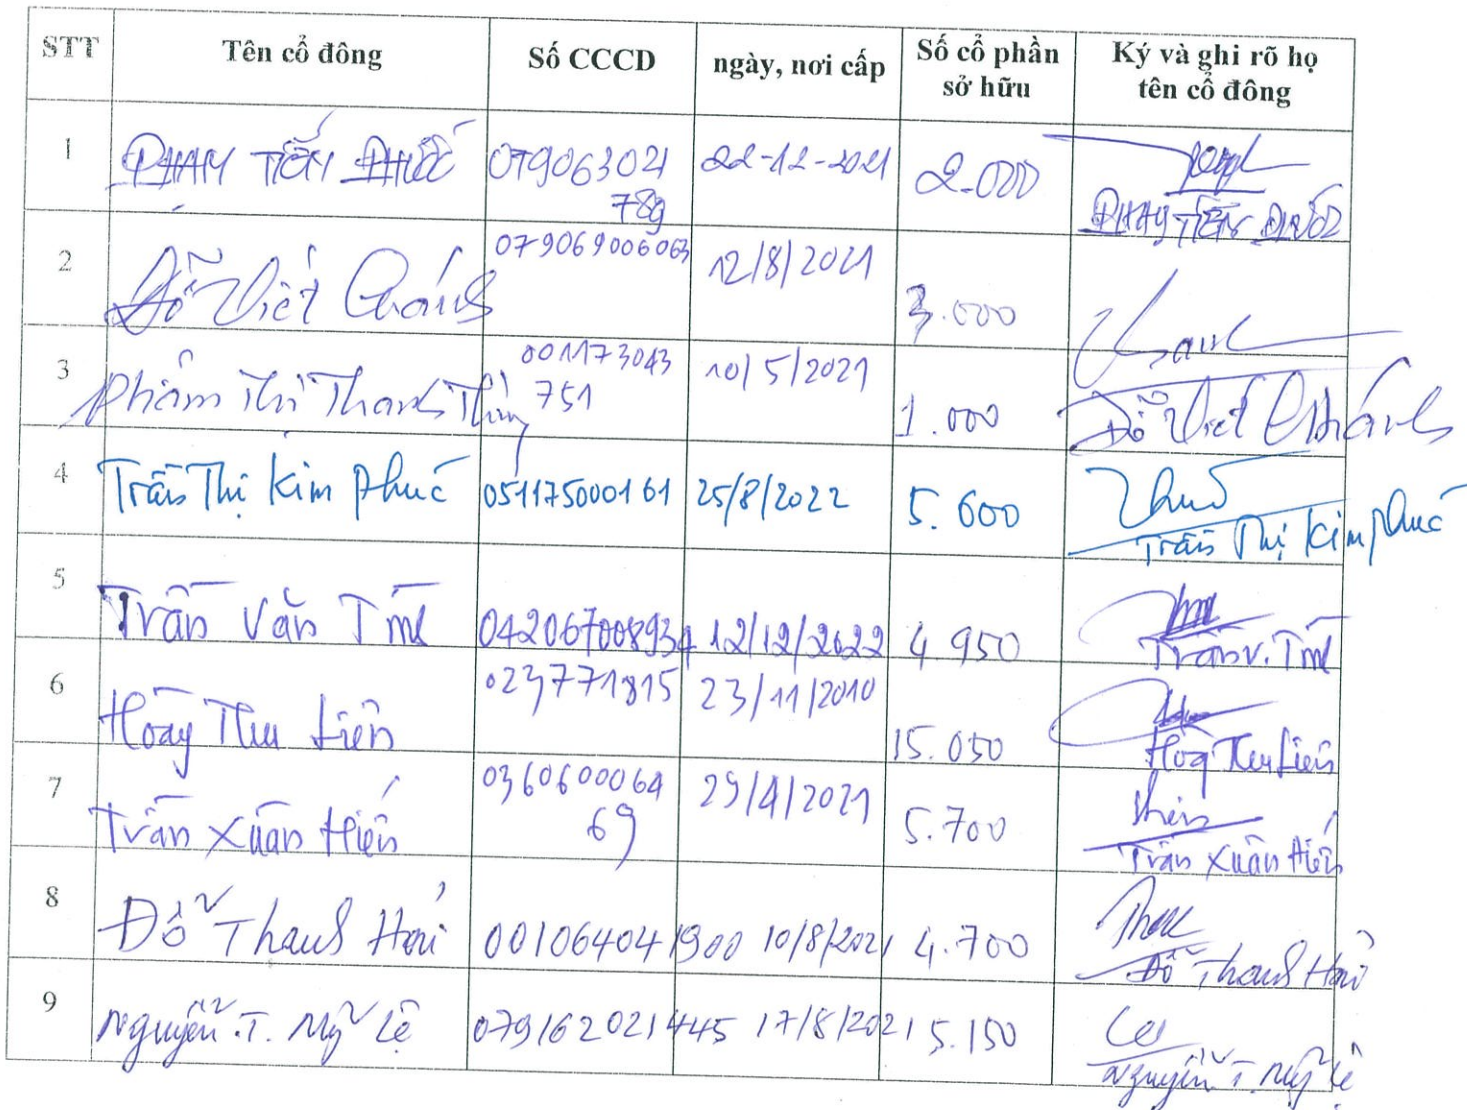 STT Tên cổ đông Số CCCD ngày, nơi cấp Số cổ phần sở hữu Ký và ghi rõ họ tên cổ đông
1 PHẠM TIẾN PHƯỚC 079063021 22-12-2021 2.000
789 PHẠM TIẾN PHƯỚC
2 Đỗ Việt Khánh 079069006063 12/8/2021 3.000
3 Phạm Thị Thanh Thủy 001173043 10/5/2021 1.000 Đỗ Việt Khánh
751
4 Trần Thị Kim Phúc 051175000161 25/8/2022 5.600 Trần Thị Kim Phúc
5 Trần Văn 042067008934 12/12/2022 4 950 Trần V.
6 Hoàng Thu Liên 023771815 23/11/2010 15.050 Hoàng Thu Liên
7 Trần Xuân Hiến 0360600064 29/4/2021 5.700 Trần Xuân Hiến
69
8 Đỗ Thanh Hải 001064041900 10/8/2021 4.700 Đỗ Thanh Hải
9 Nguyễn.T. Mỹ Lệ 079162021445 17/8/2021 5.150 Nguyễn T Mỹ Lệ